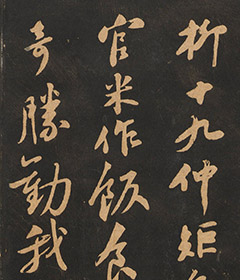 柳十九仲矩自
官米作飯食
奇勝勸我